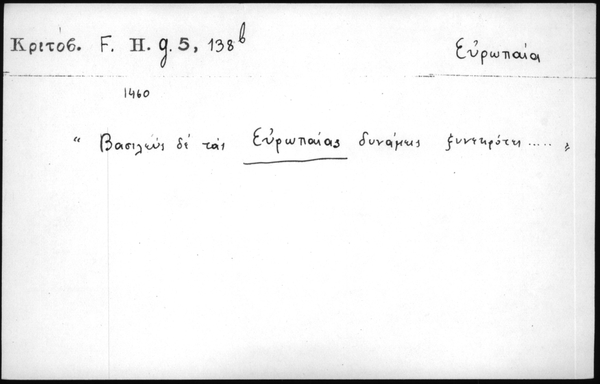 Κριτόβ. F. H. g. 5, 138b
Εὐρωπαία
1460
“ Βασιλεὺς δὲ τὰς Εὐρωπαίας δυνάμεις ξυνεκρότει ..... „